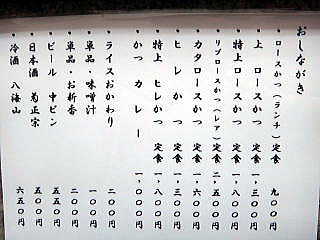 おしながき
・ロースかつ(ランチ)定食 九〇〇円
・上 ロースかつ 定食 一、三〇〇円
・特上 ロースかつ 定食 一、八〇〇円
・リブロースかつ(レア)定食 二、五〇〇円
・カタロースかつ 定食 一、六〇〇円
・ヒレかつ 定食 一、三〇〇円
・特上 ヒレかつ 定食 一、八〇〇円
・かつカレー 一、〇〇〇円
・ライスおかわり 二〇〇円
・単品・味噌汁 一〇〇円
・単品・お新香 二〇〇円
・ビール 中ビン 五五〇円
・日本酒 菊正宗 五〇〇円
・冷酒 八海山 六五〇円